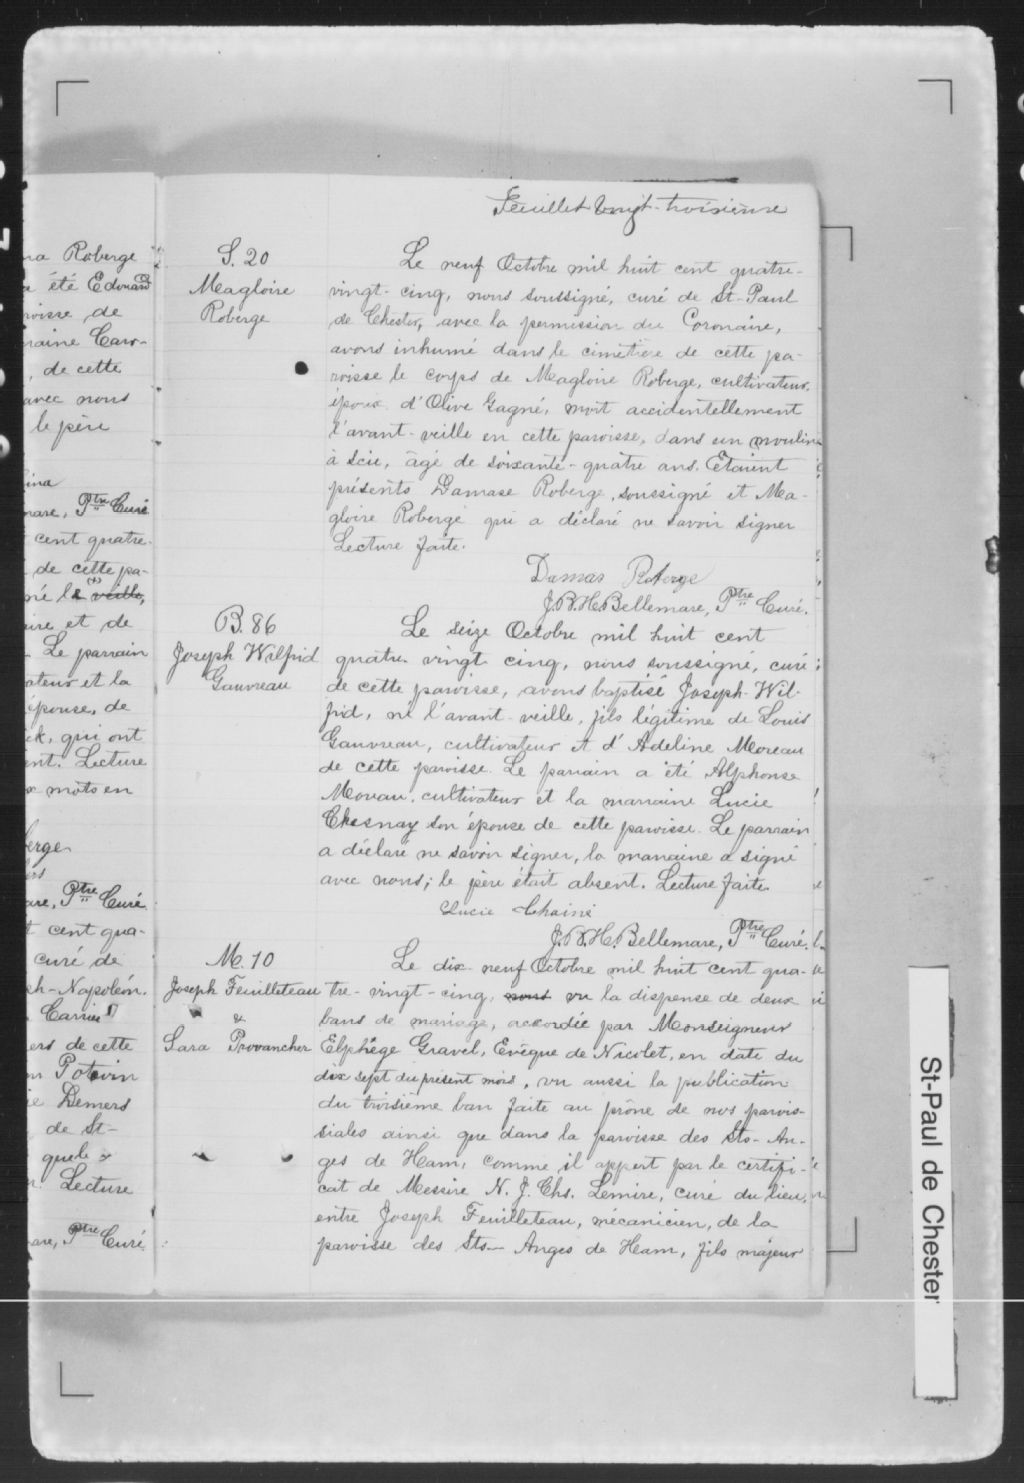 Feuillet vingt-troisième
na Roberge
a été Edouard
roisse de
raine Caro-
, de cette
avec nous
le père
ina
mare, Ptre Curé
cent quatre-
de cette pa-
né la veille,
aire et de
Le parrain
ateur et la
épouse, de
ck, qui ont
ent. Lecture
x mots en
berge
ers
are, Ptre Curé.
t cent qua-
curé de
ph-Napoléon.
Carrier
ers de cette
m Potvin
ie Demers
de St-
quels
n. Lecture
are, Ptre Curé.
S. 20
Magloire
Roberge
Le neuf Octobre mil huit cent quatre-
vingt-cinq, nous soussigné, curé de St-Paul
de Chester, avec la permission du Coronaire,
avons inhumé dans le cimetière de cette pa-
roisse le corps de Magloire Roberge, cultivateur,
époux d'Olive Gagné, mort accidentellement
l'avant-veille en cette paroisse, dans un moulin
à scie, âgé de soixante-quatre ans. Etaient
présents Damase Roberge, soussigné et Ma-
gloire Roberge qui a déclaré ne savoir signer
Lecture faite.
Damas Roberge
J.B.H. Bellemare, Ptre Curé.
B. 86
Joseph Wilfrid
Gauvreau
Le seize Octobre mil huit cent
quatre-vingt cinq, nous soussigné, curé
de cette paroisse, avons baptisé Joseph-Wil-
frid, né l'avant-veille, fils légitime de Louis
Gauvreau, cultivateur et d'Adeline Moreau
de cette paroisse. Le parrain a été Alphonse
Moreau, cultivateur et la marraine Lucie
Chesnay son épouse de cette paroisse. Le parrain
a déclaré ne savoir signer, la marraine a signé
avec nous; le père était absent. Lecture faite.
Lucie Chainé
J.B.H. Bellemare, Ptre Curé.
M. 10
Joseph Feuilleteau
&
Sara Provancher
Le dix-neuf Octobre mil huit cent qua-
tre-vingt-cinq, nous vu la dispense de deux
bans de mariage, accordée par Monseigneur
Elphège Gravel, Evêque de Nicolet, en date du
dix sept du présent mois, vu aussi la publication
du troisième ban faite au prône de nos parois-
siales ainsi que dans la paroisse des Sts-An-
ges de Ham, comme il appert par le certifi-
cat de Messire N. J. Chs. Lemire, curé du lieu,
entre Joseph Feuilleteau, mécanicien, de la
paroisse des Sts-Anges de Ham, fils majeur
St-Paul de Chester